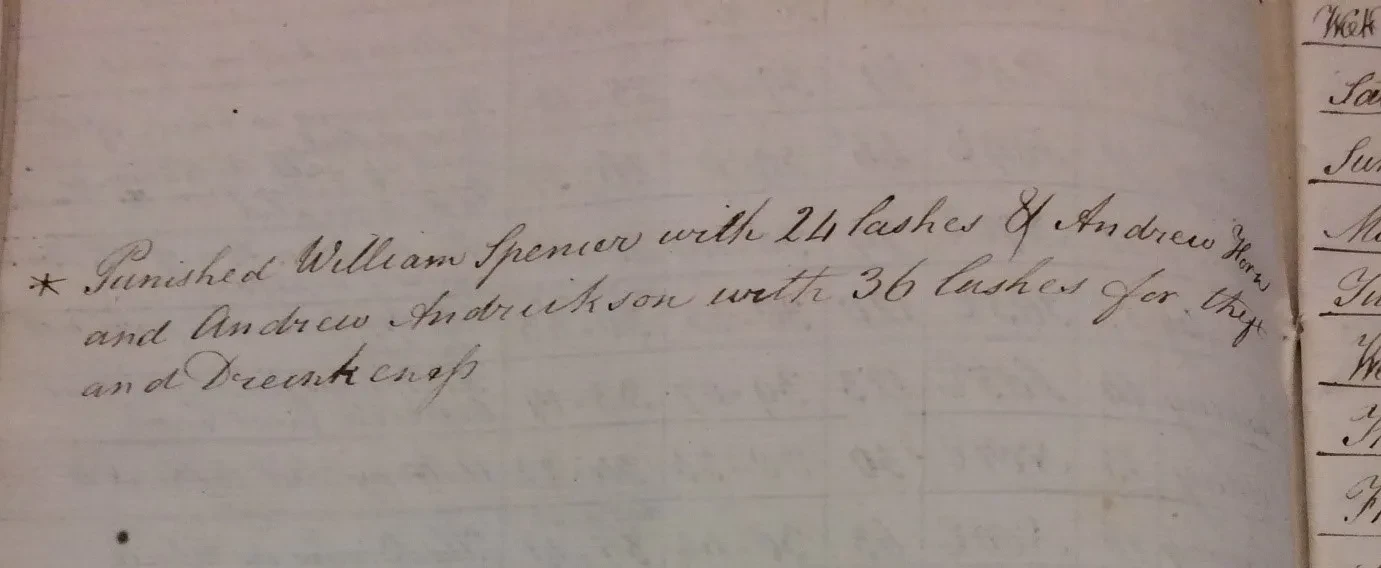 * Punished William Spencer with 24 lashes & Andrew Horn
and Andrew Andrickson with 36 lashes for theft
and Drunkeneſs